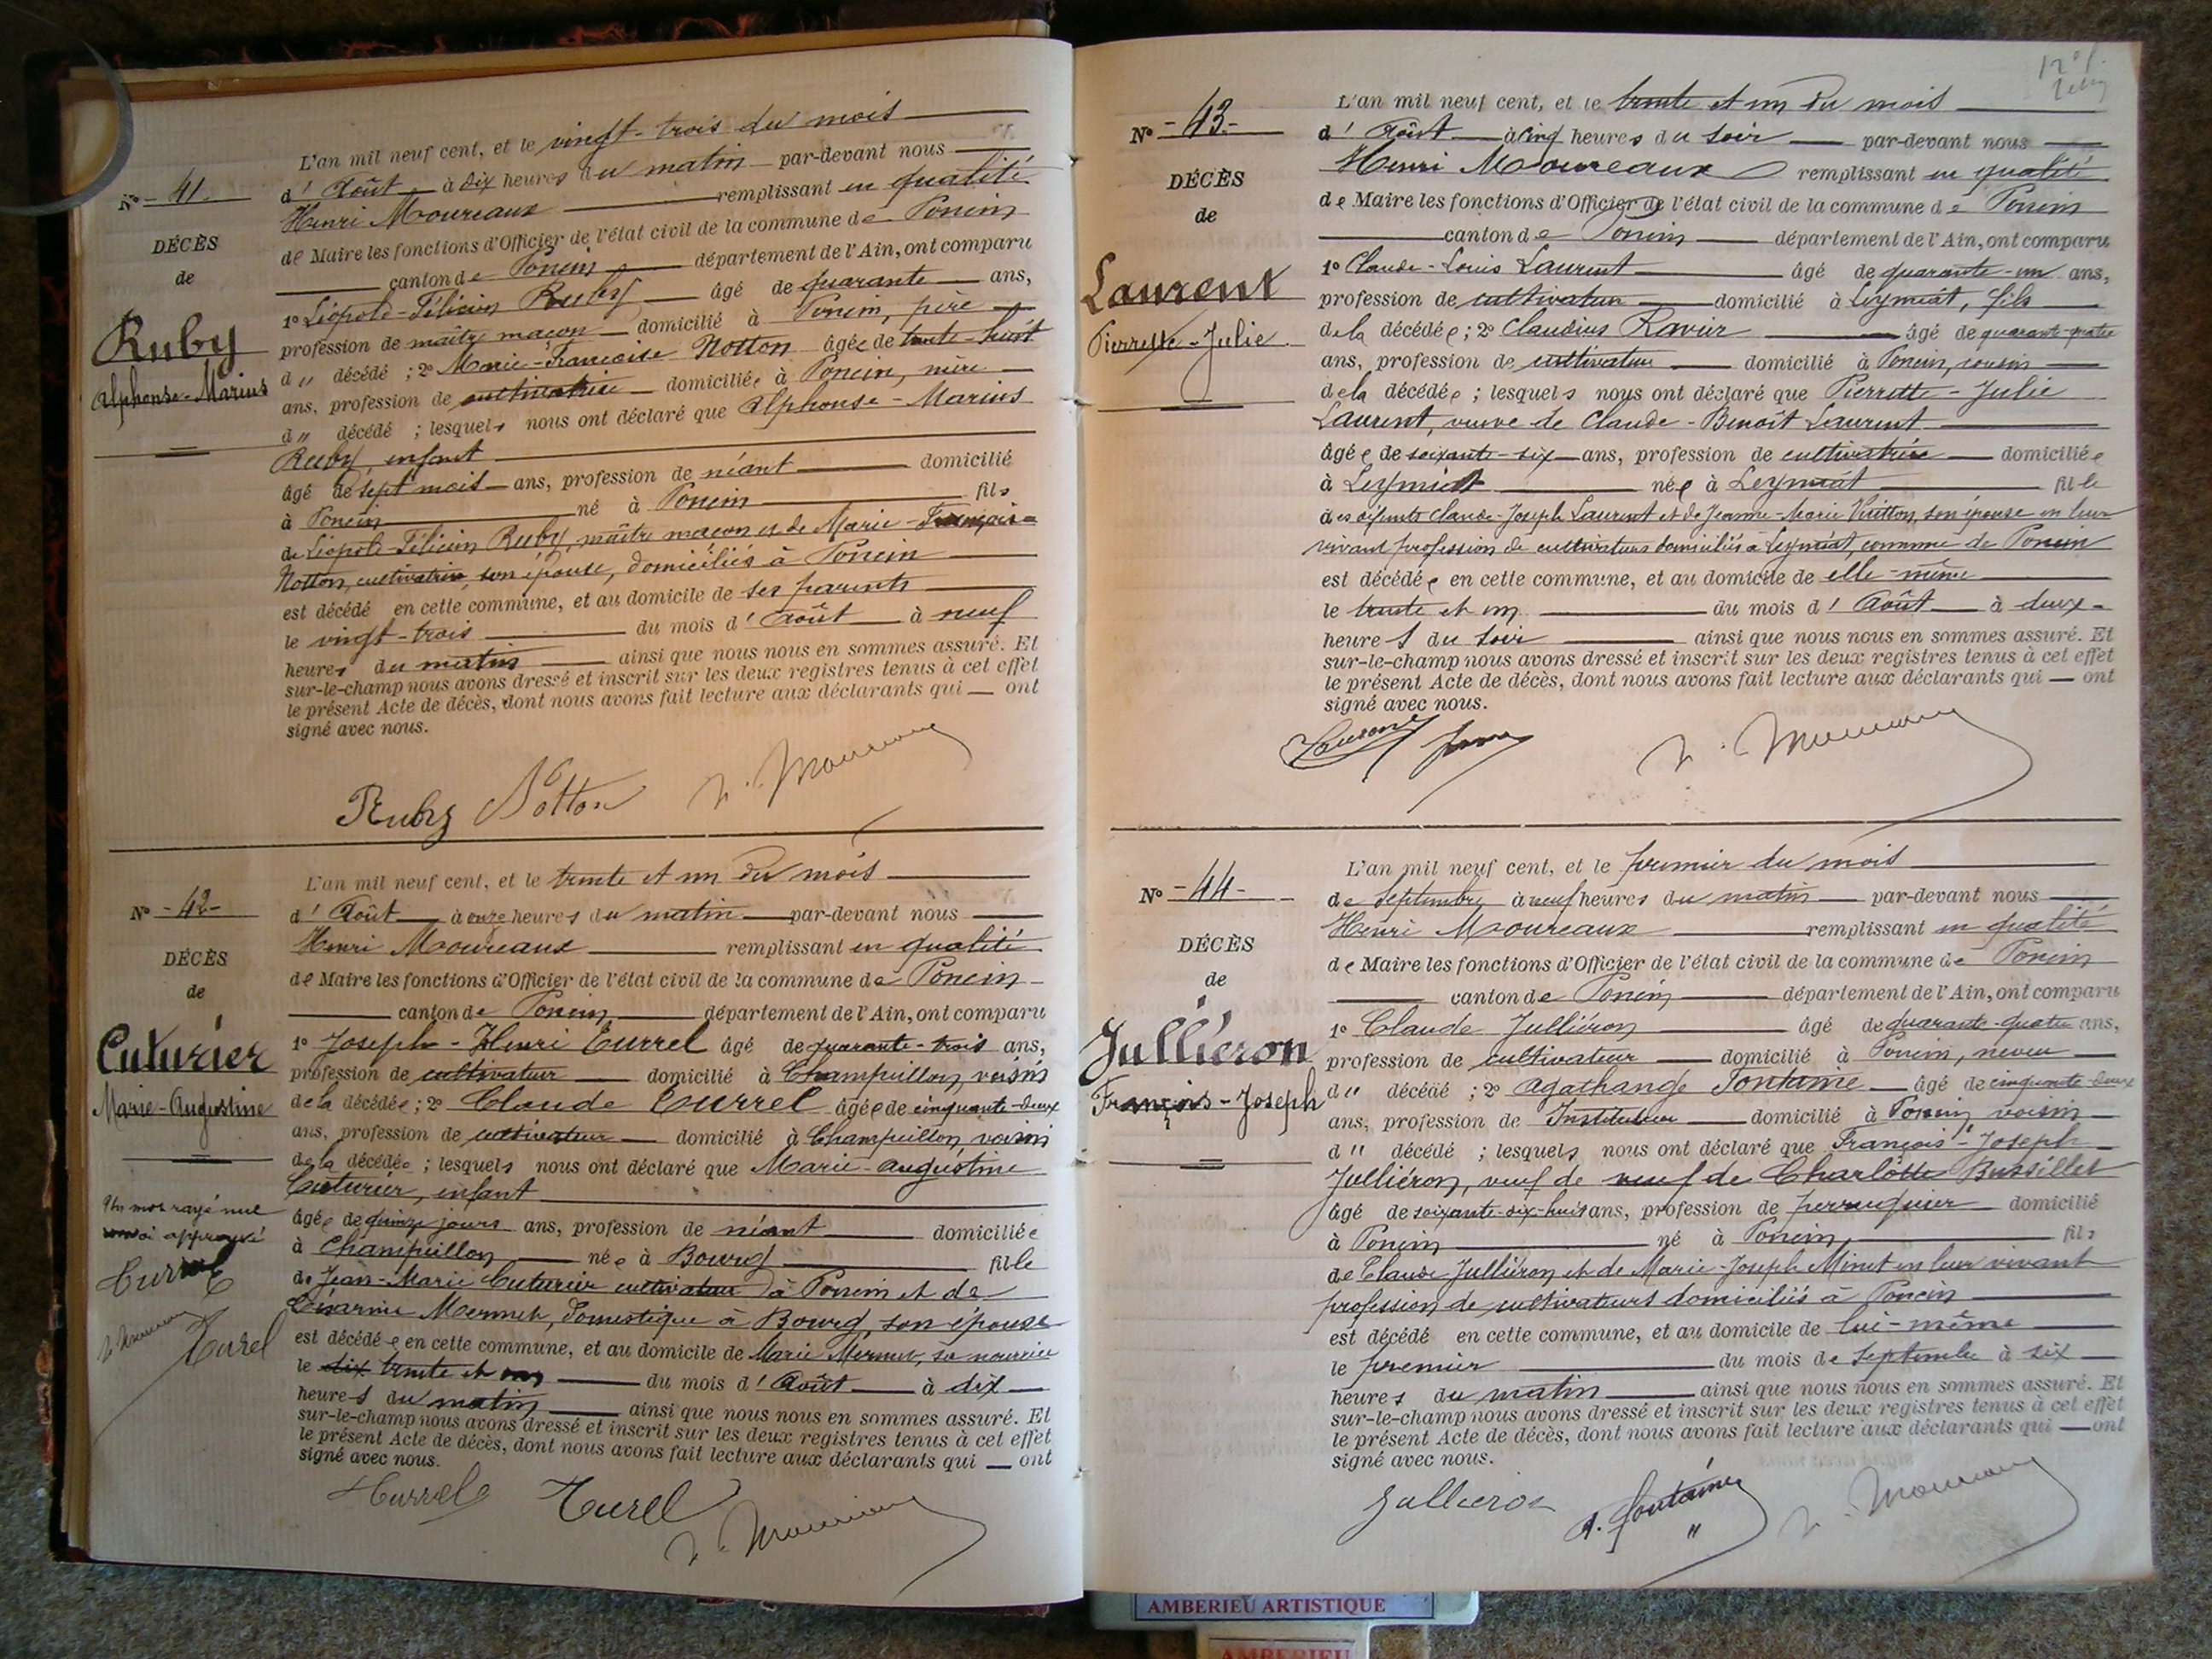 L'an mil neuf cent, et le vingt-trois du mois
N° - 41 -
d' Août à dix heures du matin par-devant nous
Henri Moureaux remplissant en qualité
DÉCÈS
de Maire les fonctions d'Officier de l'état civil de la commune de Poncin
de
canton de Poncin département de l'Ain, ont comparu
1° Léopold-Félicien Ruby âgé de quarante ans,
Ruby
profession de maître maçon domicilié à Poncin, père
Alphonse-Marius
d" décédé ; 2° Marie-Françoise Notton âgée de trente-huit
ans, profession de cultivatrice domiciliée à Poncin, mère
d" décédé ; lesquels nous ont déclaré que Alphonse-Marius
Ruby, enfant
âgé de sept mois ans, profession de néant domicilié
à Poncin né à Poncin fils
de Léopold-Félicien Ruby, maître maçon et de Marie-Françoise
Notton, cultivatrice, son épouse, domiciliés à Poncin
est décédé en cette commune, et au domicile de ses parents
le vingt-trois du mois d' Août à neuf
heures du matin ainsi que nous nous en sommes assuré. Et
sur-le-champ nous avons dressé et inscrit sur les deux registres tenus à cet effet
le présent Acte de décès, dont nous avons fait lecture aux déclarants qui ont
signé avec nous.
Ruby Notton
L'an mil neuf cent, et le trente et un du mois
N° - 42 -
d' Août à onze heures du matin par-devant nous
Henri Moureaux remplissant en qualité
DÉCÈS
de Maire les fonctions d'Officier de l'état civil de la commune de Poncin
de
canton de Poncin département de l'Ain, ont comparu
Cuturier
1° Joseph-Henri Currel âgé de quarante-trois ans,
profession de cultivateur domicilié à Champeillon, voisin
Marie-Augustine
de la décédée ; 2° Claude Currel âgée de cinquante-deux
ans, profession de cultivateur domicilié à Champeillon, voisin
de la décédée ; lesquels nous ont déclaré que Marie-Augustine
Cuturier, enfant
Un mot rayé nul
approuvé
âgée de quinze jours ans, profession de néant domiciliée
à Champeillon née à Bourg fille
de Jean-Marie Cuturier cultivateur à Poncin et de
Mermet, domestique à Bourg, son épouse
Turel
est décédée en cette commune, et au domicile de Marie Mermet, sa nourrice
le dix trente et un du mois d' Août à dix
heures du matin ainsi que nous nous en sommes assuré. Et
sur-le-champ nous avons dressé et inscrit sur les deux registres tenus à cet effet
le présent Acte de décès, dont nous avons fait lecture aux déclarants qui ont
signé avec nous.
Turel
L'an mil neuf cent, et le trente et un du mois
N° - 43 -
d' Août à cinq heures du soir par-devant nous
Henri Moureaux remplissant en qualité
DÉCÈS
de Maire les fonctions d'Officier de l'état civil de la commune de Poncin
de
canton de Poncin département de l'Ain, ont comparu
Laurent
1° Claude-Louis Laurent âgé de quarante-un ans,
profession de cultivateur domicilié à Leymiat, fils
Pierrette-Julie
de la décédée ; 2° Claudius Ravier âgé de quarante-quatre
ans, profession de cultivateur domicilié à Poncin, cousin
de la décédée ; lesquels nous ont déclaré que Pierrette-Julie
Laurent, veuve de Claude-Benoît Laurent
âgée de soixante-six ans, profession de cultivatrice domiciliée
à Leymiat née à Leymiat fille
des défunts Claude-Joseph Laurent et de Jeanne-Marie son épouse en leur
vivant profession de cultivateurs domiciliés à Leymiat, commune de Poncin
est décédée en cette commune, et au domicile de elle-même
le trente et un du mois d' Août à deux
heures du soir ainsi que nous nous en sommes assuré. Et
sur-le-champ nous avons dressé et inscrit sur les deux registres tenus à cet effet
le présent Acte de décès, dont nous avons fait lecture aux déclarants qui ont
signé avec nous.
L'an mil neuf cent, et le premier du mois
N° - 44 -
de Septembre à neuf heures du matin par-devant nous
Henri Moureaux remplissant en qualité
DÉCÈS
de Maire les fonctions d'Officier de l'état civil de la commune de Poncin
de
canton de Poncin département de l'Ain, ont comparu
Julliéron
1° Claude Julliéron âgé de quarante-quatre ans,
profession de cultivateur domicilié à Poncin, neveu
François-Joseph
d" décédé ; 2° Agathange Fontaine âgé de cinquante-deux
ans, profession de Instituteur domicilié à Poncin voisin
d" décédé ; lesquels nous ont déclaré que François-Joseph
Julliéron, veuf de veuf de Charlotte Bussillet
âgé de soixante-dix-huit ans, profession de perruquier domicilié
à Poncin né à Poncin, fils
de Claude Julliéron et de Marie-Joseph Minet en leur vivant
profession de cultivateurs domiciliés à Poncin
est décédé en cette commune, et au domicile de lui-même
le premier du mois de Septembre à six
heures du matin ainsi que nous nous en sommes assuré. Et
sur-le-champ nous avons dressé et inscrit sur les deux registres tenus à cet effet
le présent Acte de décès, dont nous avons fait lecture aux déclarants qui ont
signé avec nous.
Jullieron A. Fontaine
AMBERIEU ARTISTIQUE
AMBERIEU